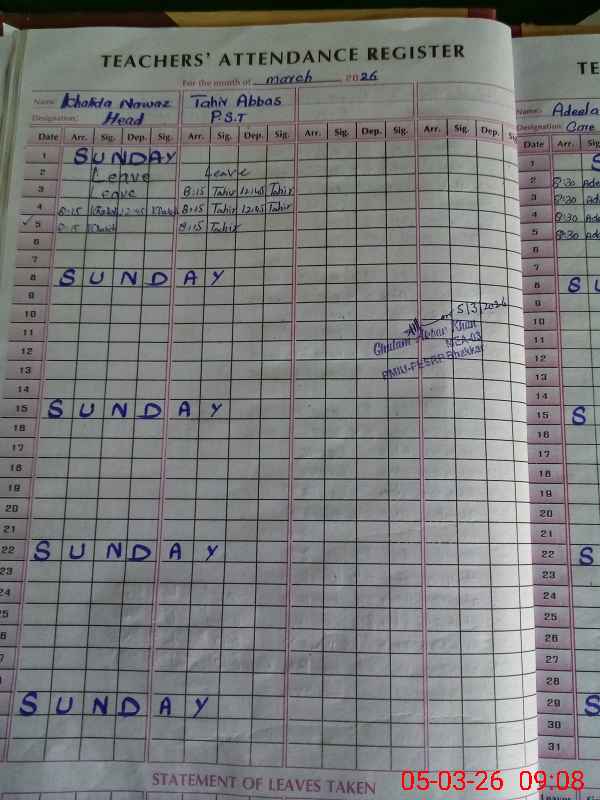 TEACHERS' ATTENDANCE REGISTER
For the month of march 2026
Name: Khalida Nawaz Tahir Abbas
Designation: Head P.S.T
Date Arr. Sig. Dep. Sig. Arr. Sig. Dep. Sig. Arr. Sig. Dep. Sig. Arr. Sig. Dep.
1 SUNDAY
2 Leave Leave
3 Leave 8:15 Tahir 12:45 Tahir
4 8:15 12:45 8:15 Tahir 12:45 Tahir
5 8:15 8:15 Tahir
6
7
8 SUNDAY
9
10
11
12
13
14
15 SUNDAY
16
17
18
19
20
21
22 SUNDAY
23
24
25
26
27
28
SUNDAY
5/3/2026
Ghulam Akbar Khan
MEA-03
PMIU-PESRP Bhakkar
STATEMENT OF LEAVES TAKEN
TE
Name: Adeela
Designation: Care
Date Arr. Sig
1 S
2 8:30 Ade
3 8:30 Ade
4 8:30 Ade
5 8:30 Ade
6
7
8 SU
9
10
11
12
13
14
15 S
16
17
18
19
20
21
22 S
23
24
25
26
27
28
29 S
30
31
Leaves
05-03-26 09:08